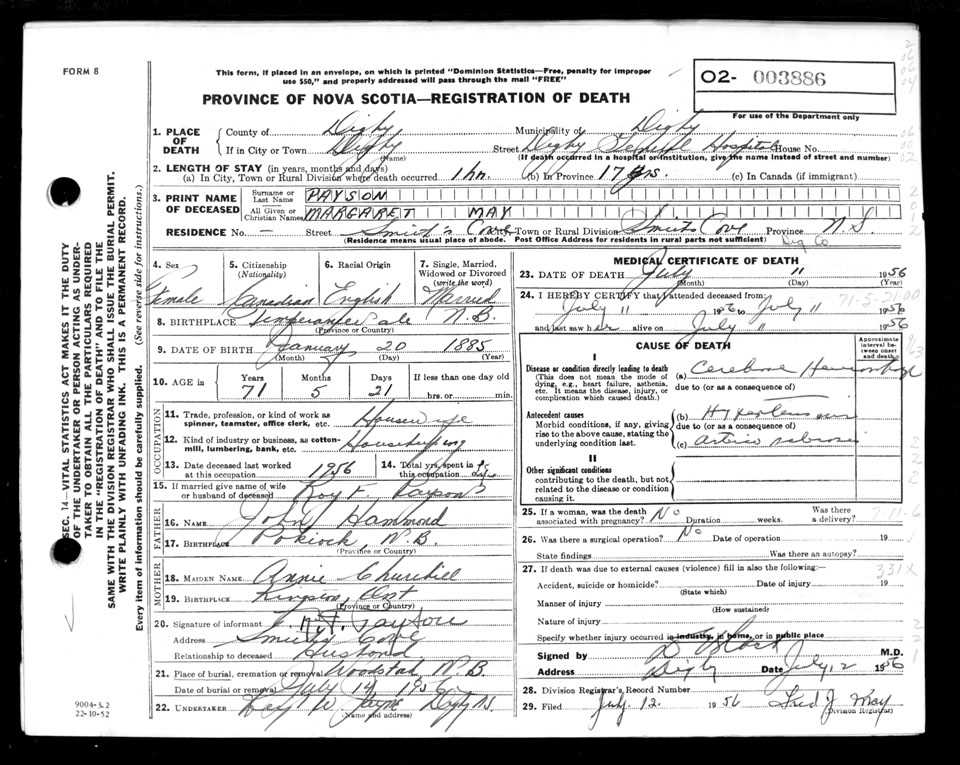 FORM 8
This form, if placed in an envelope, on which is printed "Dominion Statistics—Free, penalty for improper
use $50," and properly addressed will pass through the mail "FREE"
O2- 003886
For use of the Department only
PROVINCE OF NOVA SCOTIA—REGISTRATION OF DEATH
1. PLACE OF DEATH
County of Digby Municipality of Digby
If in City or Town Digby (Name) Street Digby General Hospital House No.
(If death occurred in a hospital or institution, give the name instead of street and number)
2. LENGTH OF STAY (in years, months and days)
(a) In City, Town or Rural Division where death occurred 1 hr. (b) In Province 17 yrs. (c) In Canada (if immigrant)
3. PRINT NAME OF DECEASED
Surname or Last Name PAYSON
All Given or Christian Names MARGARET MAY
RESIDENCE No. — Street Smith's Cove Town or Rural Division Smiths Cove Province N.S.
(Residence means usual place of abode. Post Office Address for residents in rural parts not sufficient) Dig Co
4. Sex Female
5. Citizenship (Nationality) Canadian
6. Racial Origin English
7. Single, Married, Widowed or Divorced (write the word) Married
8. BIRTHPLACE Temperance Vale N.B.
(Province or Country)
9. DATE OF BIRTH January 20 1885
(Month) (Day) (Year)
10. AGE in Years 71 Months 5 Days 21 If less than one day old hrs. or min.
OCCUPATION
11. Trade, profession, or kind of work as spinner, teamster, office clerk, etc. Housewife
12. Kind of industry or business, as cotton-mill, lumbering, bank, etc. Housekeeping
13. Date deceased last worked at this occupation 1956
14. Total yrs. spent in this occupation life
15. If married give name of wife or husband of deceased Roy F. Payson
FATHER
16. NAME John Hammond
17. BIRTHPLACE Pokiock, N.B.
(Province or Country)
MOTHER
18. MAIDEN NAME Annie Churchill
19. BIRTHPLACE Kingston, Ont
(Province or Country)
20. Signature of informant R. F. Payson
Address Smiths Cove
Relationship to deceased Husband
21. Place of burial, cremation or removal Woodstock, N.B.
Date of burial or removal July 14 1956
22. UNDERTAKER W. Jayne Digby N.S.
(Name and address)
MEDICAL CERTIFICATE OF DEATH
23. DATE OF DEATH July 11 1956
(Month) (Day)
24. I HEREBY CERTIFY that I attended deceased from:
July 11 1956 to July 11 1956
and last saw her alive on July 11 1956
71-5-21-00
CAUSE OF DEATH
Approximate interval between onset and death
I
Disease or condition directly leading to death
(This does not mean the mode of dying, e.g., heart failure, asthenia, etc. It means the disease, injury, or complication which caused death.)
(a) Cerebral Hemorrhage
due to (or as a consequence of)
Antecedent causes
Morbid conditions, if any, giving rise to the above cause, stating the underlying condition last.
(b) Hypertension
due to (or as a consequence of)
(c) Arteriosclerosis
II
Other significant conditions
contributing to the death, but not related to the disease or condition causing it.
25. If a woman, was the death associated with pregnancy? No Duration weeks. Was there a delivery?
7-11-6
26. Was there a surgical operation? No Date of operation 19
State findings Was there an autopsy?
27. If death was due to external causes (violence) fill in also the following:—
331X
Accident, suicide or homicide? Date of injury 19
(State which)
Manner of injury
(How sustained)
Nature of injury
Specify whether injury occurred in industry, in home, or in public place
Signed by Black M.D.
Address Digby Date July 12 1956
28. Division Registrar's Record Number
29. Filed July 12 1956 Fred J. May
(Division Registrar)
SEC. 14—VITAL STATISTICS ACT MAKES IT THE DUTY
OF THE UNDERTAKER OR PERSON ACTING AS UNDER-
TAKER TO OBTAIN ALL THE PARTICULARS REQUIRED
IN THE "REGISTRATION OF DEATH" AND TO FILE THE
SAME WITH THE DIVISION REGISTRAR WHO SHALL ISSUE THE BURIAL PERMIT.
WRITE PLAINLY WITH UNFADING INK. THIS IS A PERMANENT RECORD.
Every item of information should be carefully supplied. (See reverse side for instructions.)
9004-3.2
22-10-52